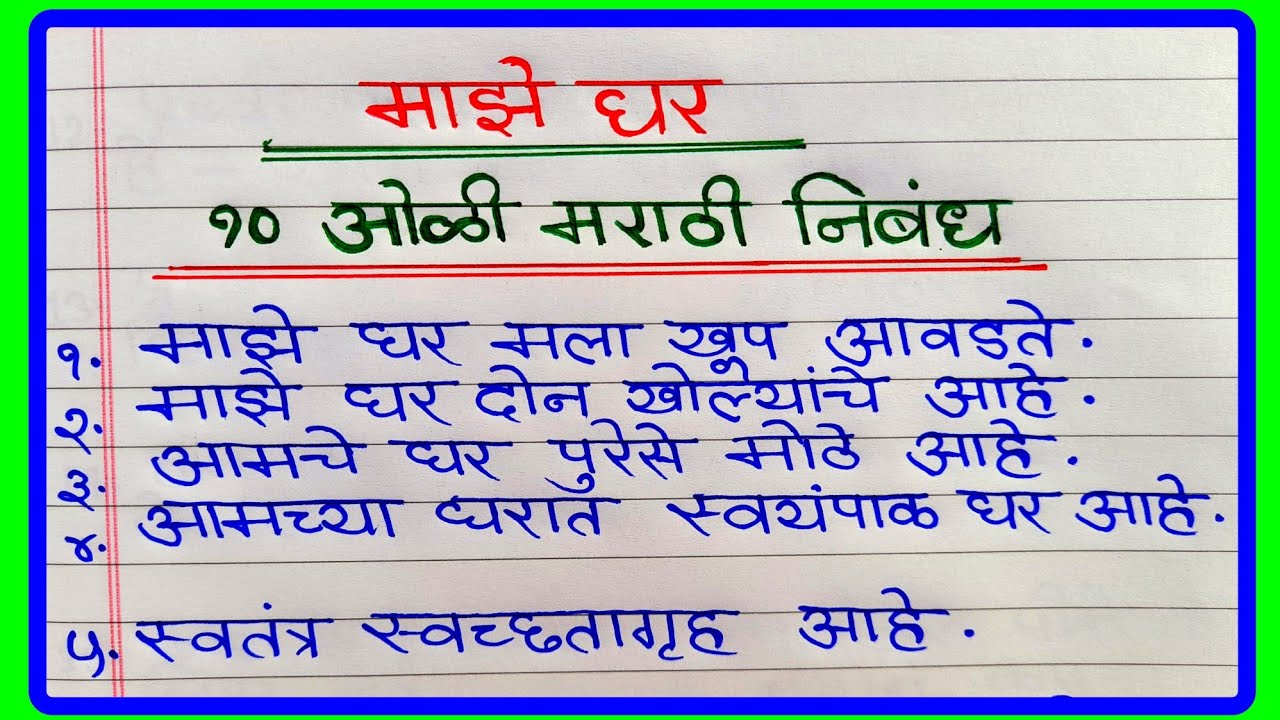 माझे घर
१० ओळी मराठी निबंध
१. माझे घर मला खूप आवडते.
२. माझे घर दोन खोल्यांचे आहे.
३. आमचे घर पुरेसे मोठे आहे.
४. आमच्या घरात स्वयंपाक घर आहे.
५. स्वतंत्र स्वच्छतागृह आहे.